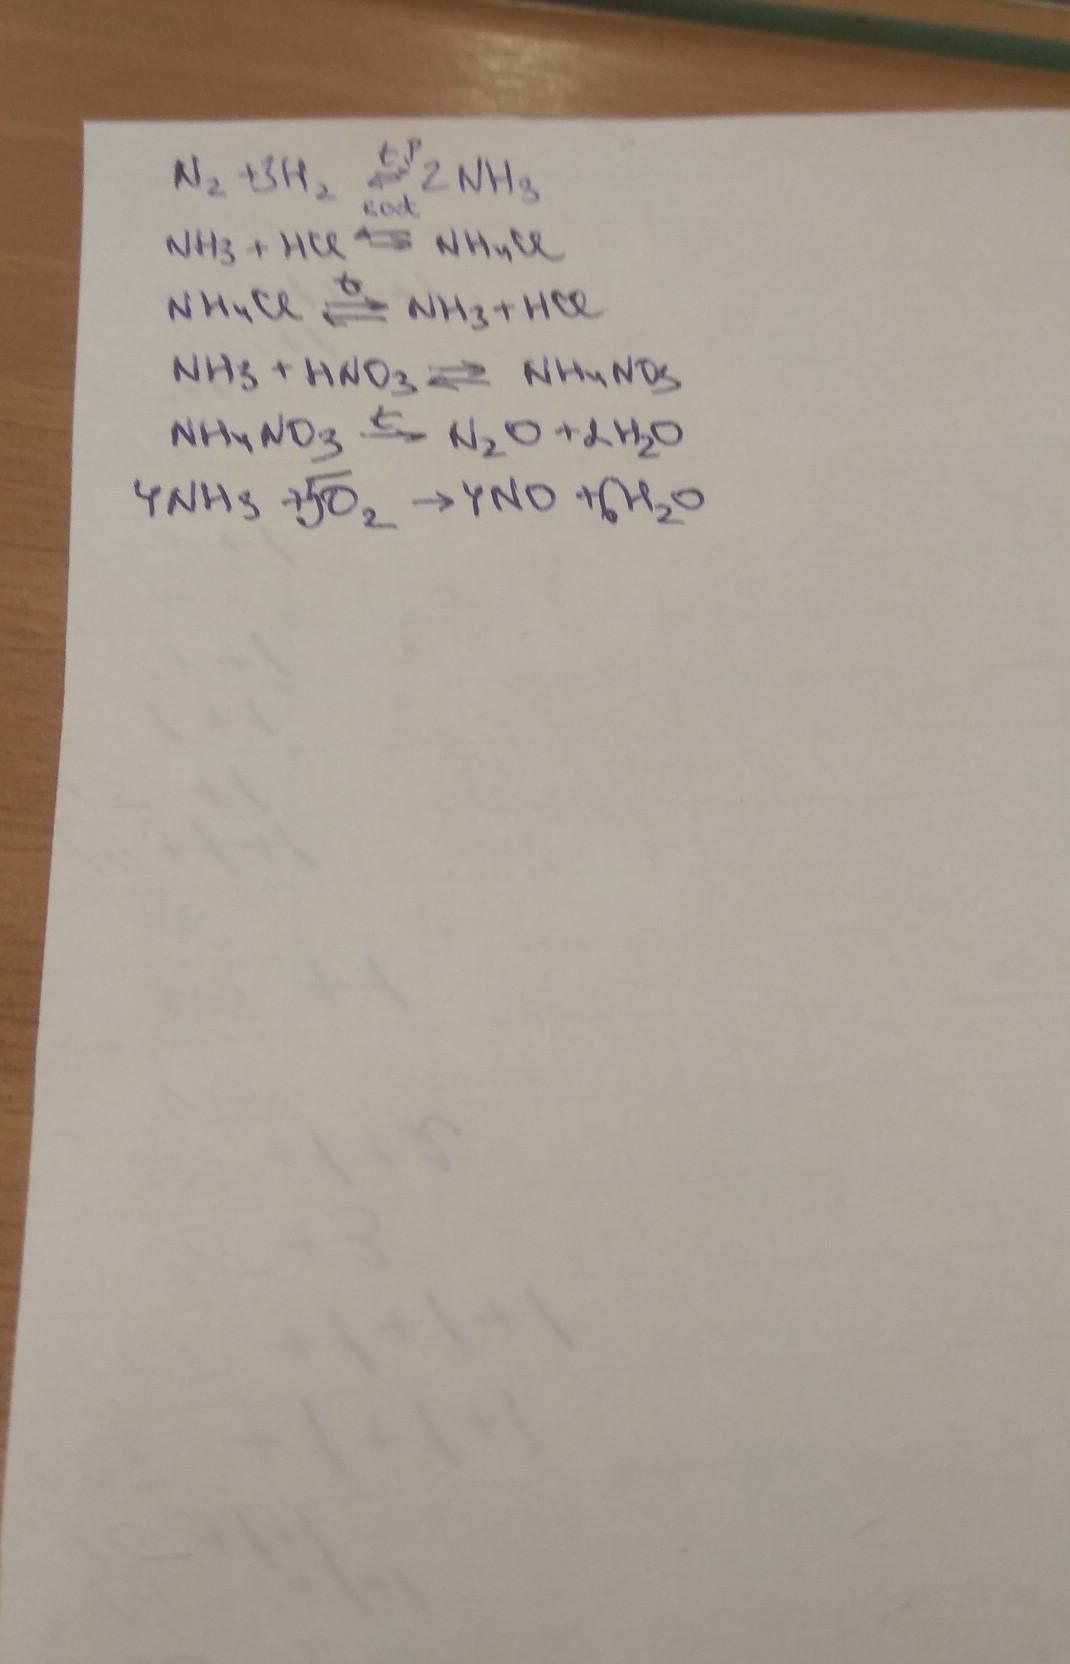 N2 + 3H2 ⇄ t,p kat 2NH3
NH3 + HCl ⇆ NH4Cl
NH4Cl ⇄ t NH3 + HCl
NH3 + HNO3 ⇄ NH4NO3
NH4NO3 t→ N2O + 2H2O
4NH3 + 5O2 → 4NO + 6H2O